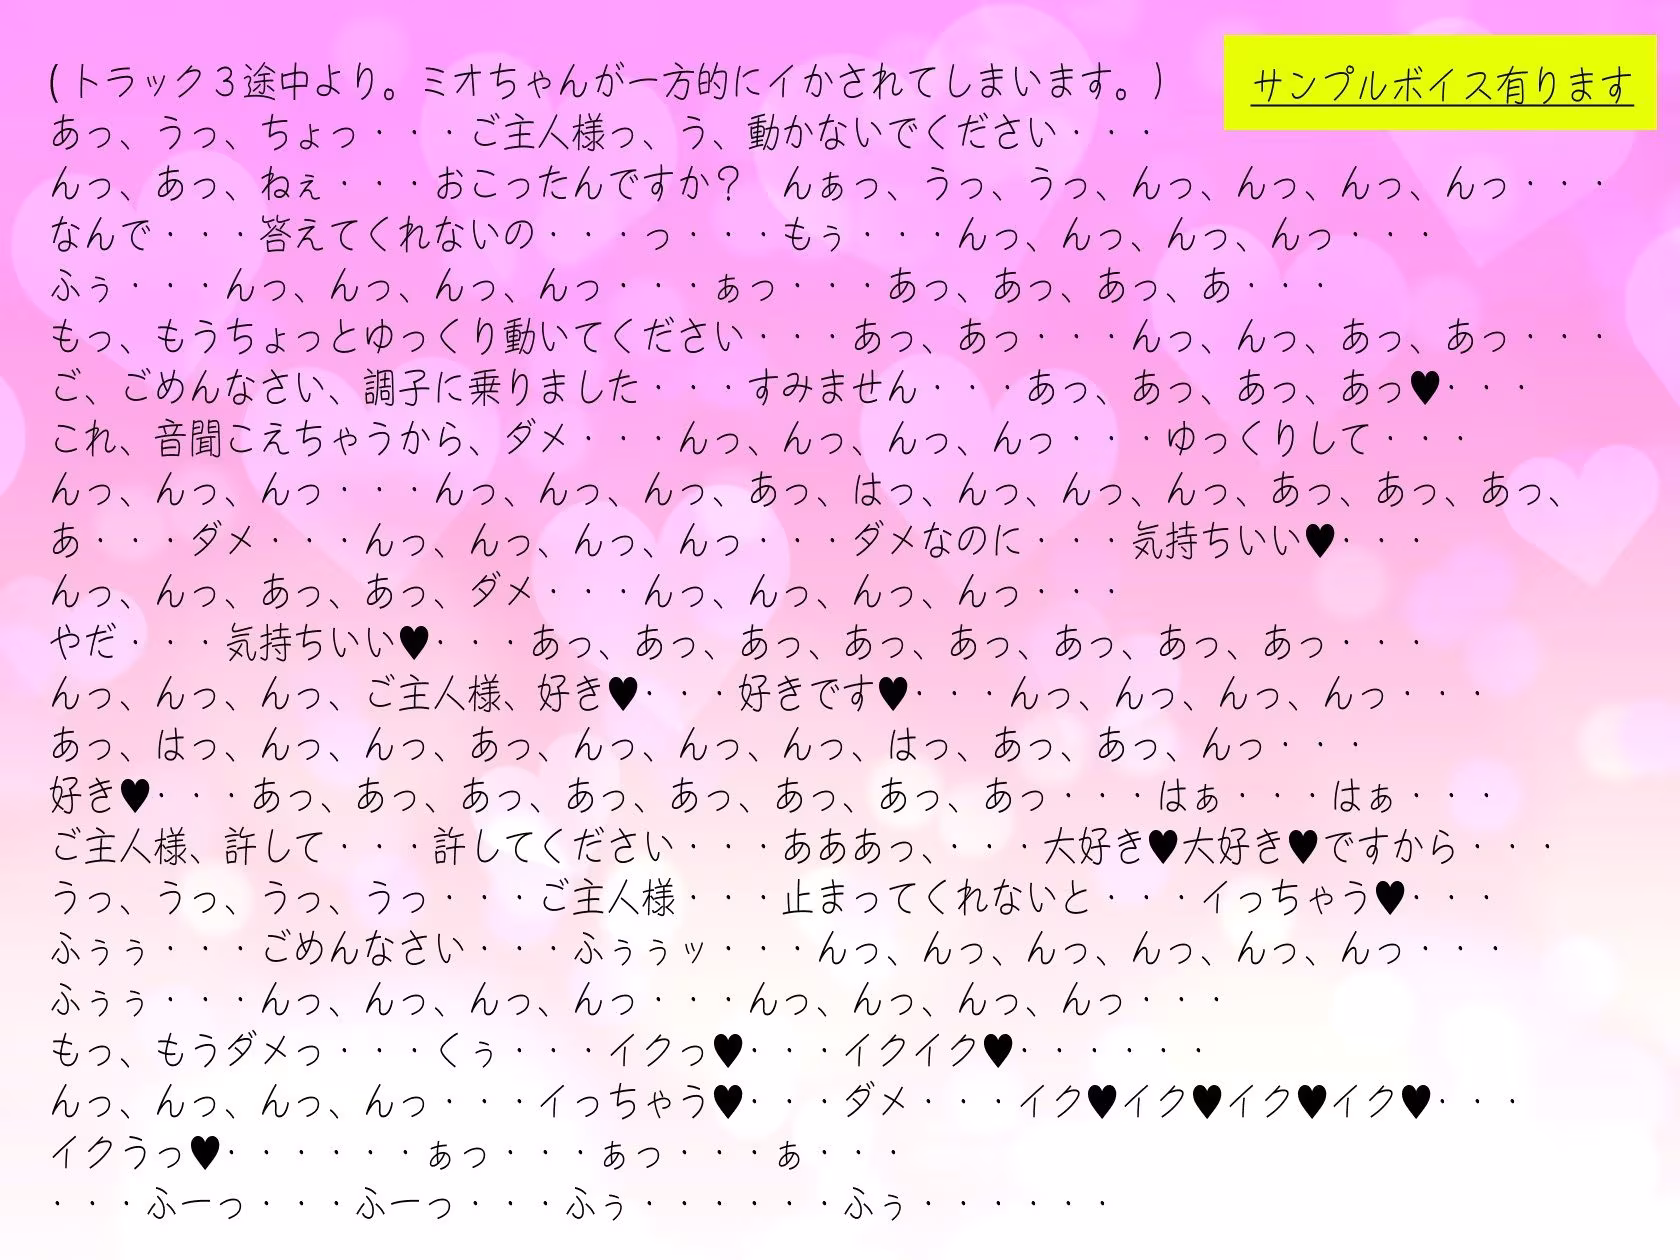 (トラック３途中より。ミオちゃんが一方的にイかされてしまいます。)
サンプルボイス有ります
あっ、うっ、ちょっ・・・ご主人様っ、う、動かないでください・・・
んっ、あっ、ねぇ・・・おこったんですか？　んぁっ、うっ、うっ、んっ、んっ、んっ、んっ・・・
なんで・・・答えてくれないの・・・っ・・・もぅ・・・んっ、んっ、んっ、んっ・・・
ふぅ・・・んっ、んっ、んっ、んっ・・・ぁっ・・・あっ、あっ、あっ、あ・・・
もっ、もうちょっとゆっくり動いてください・・・あっ、あっ・・・んっ、んっ、あっ、あっ・・・
ご、ごめんなさい、調子に乗りました・・・すみません・・・あっ、あっ、あっ、あっ♥・・・
これ、音聞こえちゃうから、ダメ・・・んっ、んっ、んっ、んっ・・・ゆっくりして・・・
んっ、んっ、んっ・・・んっ、んっ、んっ、あっ、はっ、んっ、んっ、んっ、あっ、あっ、あっ、
あ・・・ダメ・・・んっ、んっ、んっ、んっ・・・ダメなのに・・・気持ちいい♥・・・
んっ、んっ、あっ、あっ、ダメ・・・んっ、んっ、んっ、んっ・・・
やだ・・・気持ちいい♥・・・あっ、あっ、あっ、あっ、あっ、あっ、あっ、あっ・・・
んっ、んっ、んっ、ご主人様、好き♥・・・好きです♥・・・んっ、んっ、んっ、んっ・・・
あっ、はっ、んっ、んっ、あっ、んっ、んっ、んっ、はっ、あっ、あっ、んっ・・・
好き♥・・・あっ、あっ、あっ、あっ、あっ、あっ、あっ、あっ・・・はぁ・・・はぁ・・・
ご主人様、許して・・・許してください・・・あああっ、・・・大好き♥大好き♥ですから・・・
うっ、うっ、うっ、うっ・・・ご主人様・・・止まってくれないと・・・イっちゃう♥・・・
ふぅぅ・・・ごめんなさい・・・ふぅぅッ・・・んっ、んっ、んっ、んっ、んっ、んっ・・・
ふぅぅ・・・んっ、んっ、んっ、んっ・・・んっ、んっ、んっ、んっ・・・
もっ、もうダメっ・・・くぅ・・・イクっ♥・・・イクイク♥・・・・・・
んっ、んっ、んっ、んっ・・・イっちゃう♥・・・ダメ・・・イク♥イク♥イク♥イク♥・・・
イクうっ♥・・・・・・ぁっ・・・ぁっ・・・ぁ・・・
・・・ふーっ・・・ふーっ・・・ふぅ・・・・・・ふぅ・・・・・・